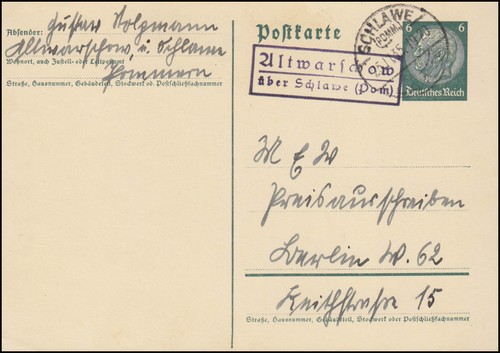 Absender: Gustav Holzmann
Altwarschow, ü. Schlawe
Wohnort, auch Zustell- oder Leitpostamt
Pommern
Straße, Hausnummer, Gebäudeteil, Stockwerk od. Postschließfachnummer
Postkarte
SCHLAWE
6 6
Deutsches Reich
Altwarschow
über Schlawe (Pom)
M E W
Preisausschreiben
Berlin W. 62
Keithstraße 15
Straße, Hausnummer, Gebäudeteil, Stockwerk oder Postschließfachnummer